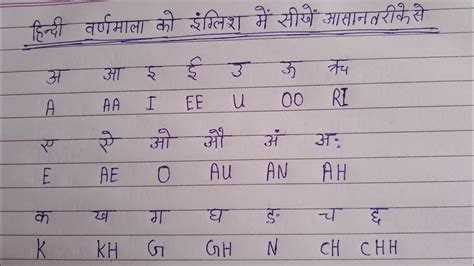 हिन्दी वर्णमाला को इंग्लिश में सीखें आसान तरीके से
अ आ इ ई उ ऊ ऋ
A AA I EE U OO RI
ए ऐ ओ औ अं अः
E AE O AU AN AH
क ख ग घ ङ च छ
K KH G GH N CH CHH